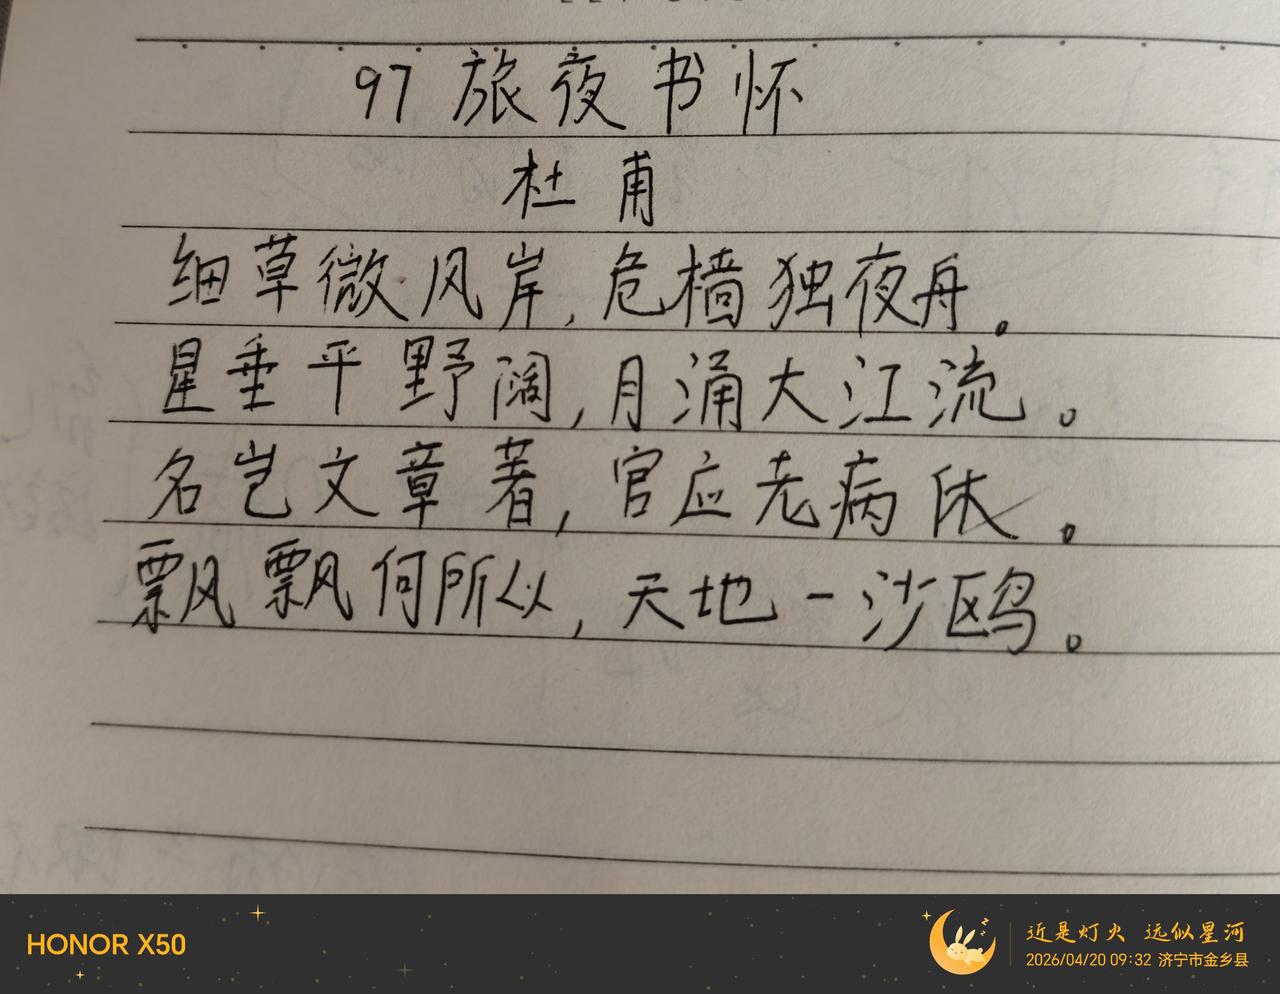 97 旅夜书怀
杜甫
细草微风岸,危樯独夜舟。
星垂平野阔,月涌大江流。
名岂文章著,官应老病休。
飘飘何所以,天地一沙鸥。
HONOR X50
近是灯火 远似星河
2026/04/20 09:32 济宁市金乡县